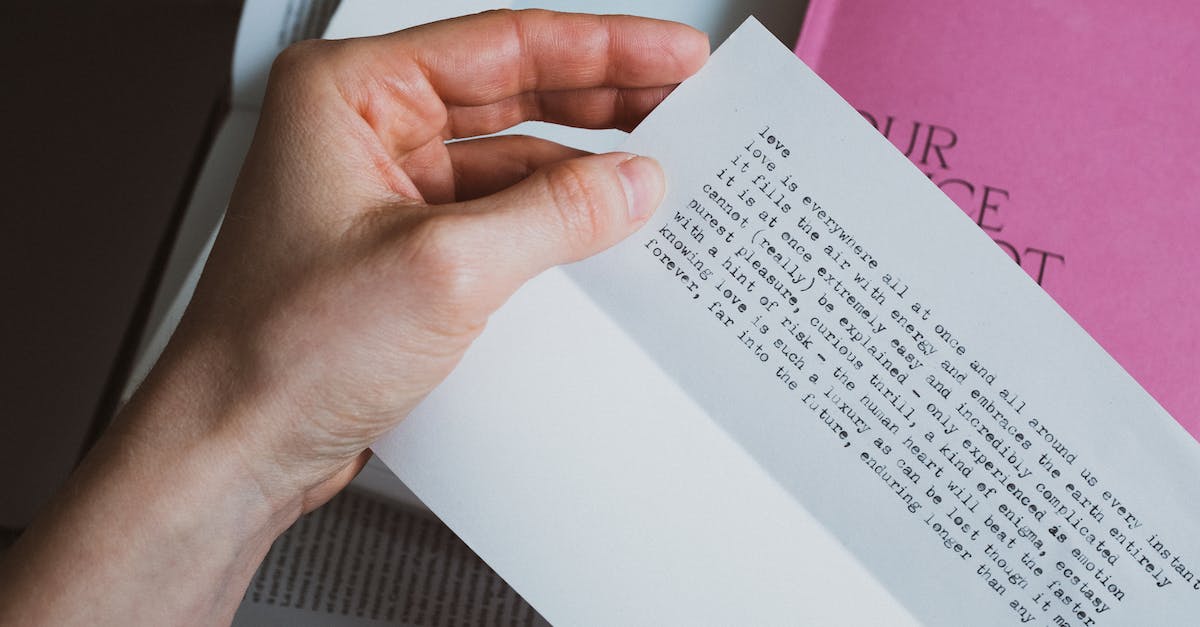 love
love is everywhere all at once and all around us every instant
it fills the air with energy and embraces the earth entirely
it is at once extremely easy and incredibly complicated
cannot (really) be explained – only experienced as emotion
purest pleasure, curious thrill, a kind of enigma, ecstasy
with a hint of risk – the human heart will beat the faster
knowing love is such a luxury as can be lost though it
forever, far into the future, enduring longer than any
OUR
ICE
OT